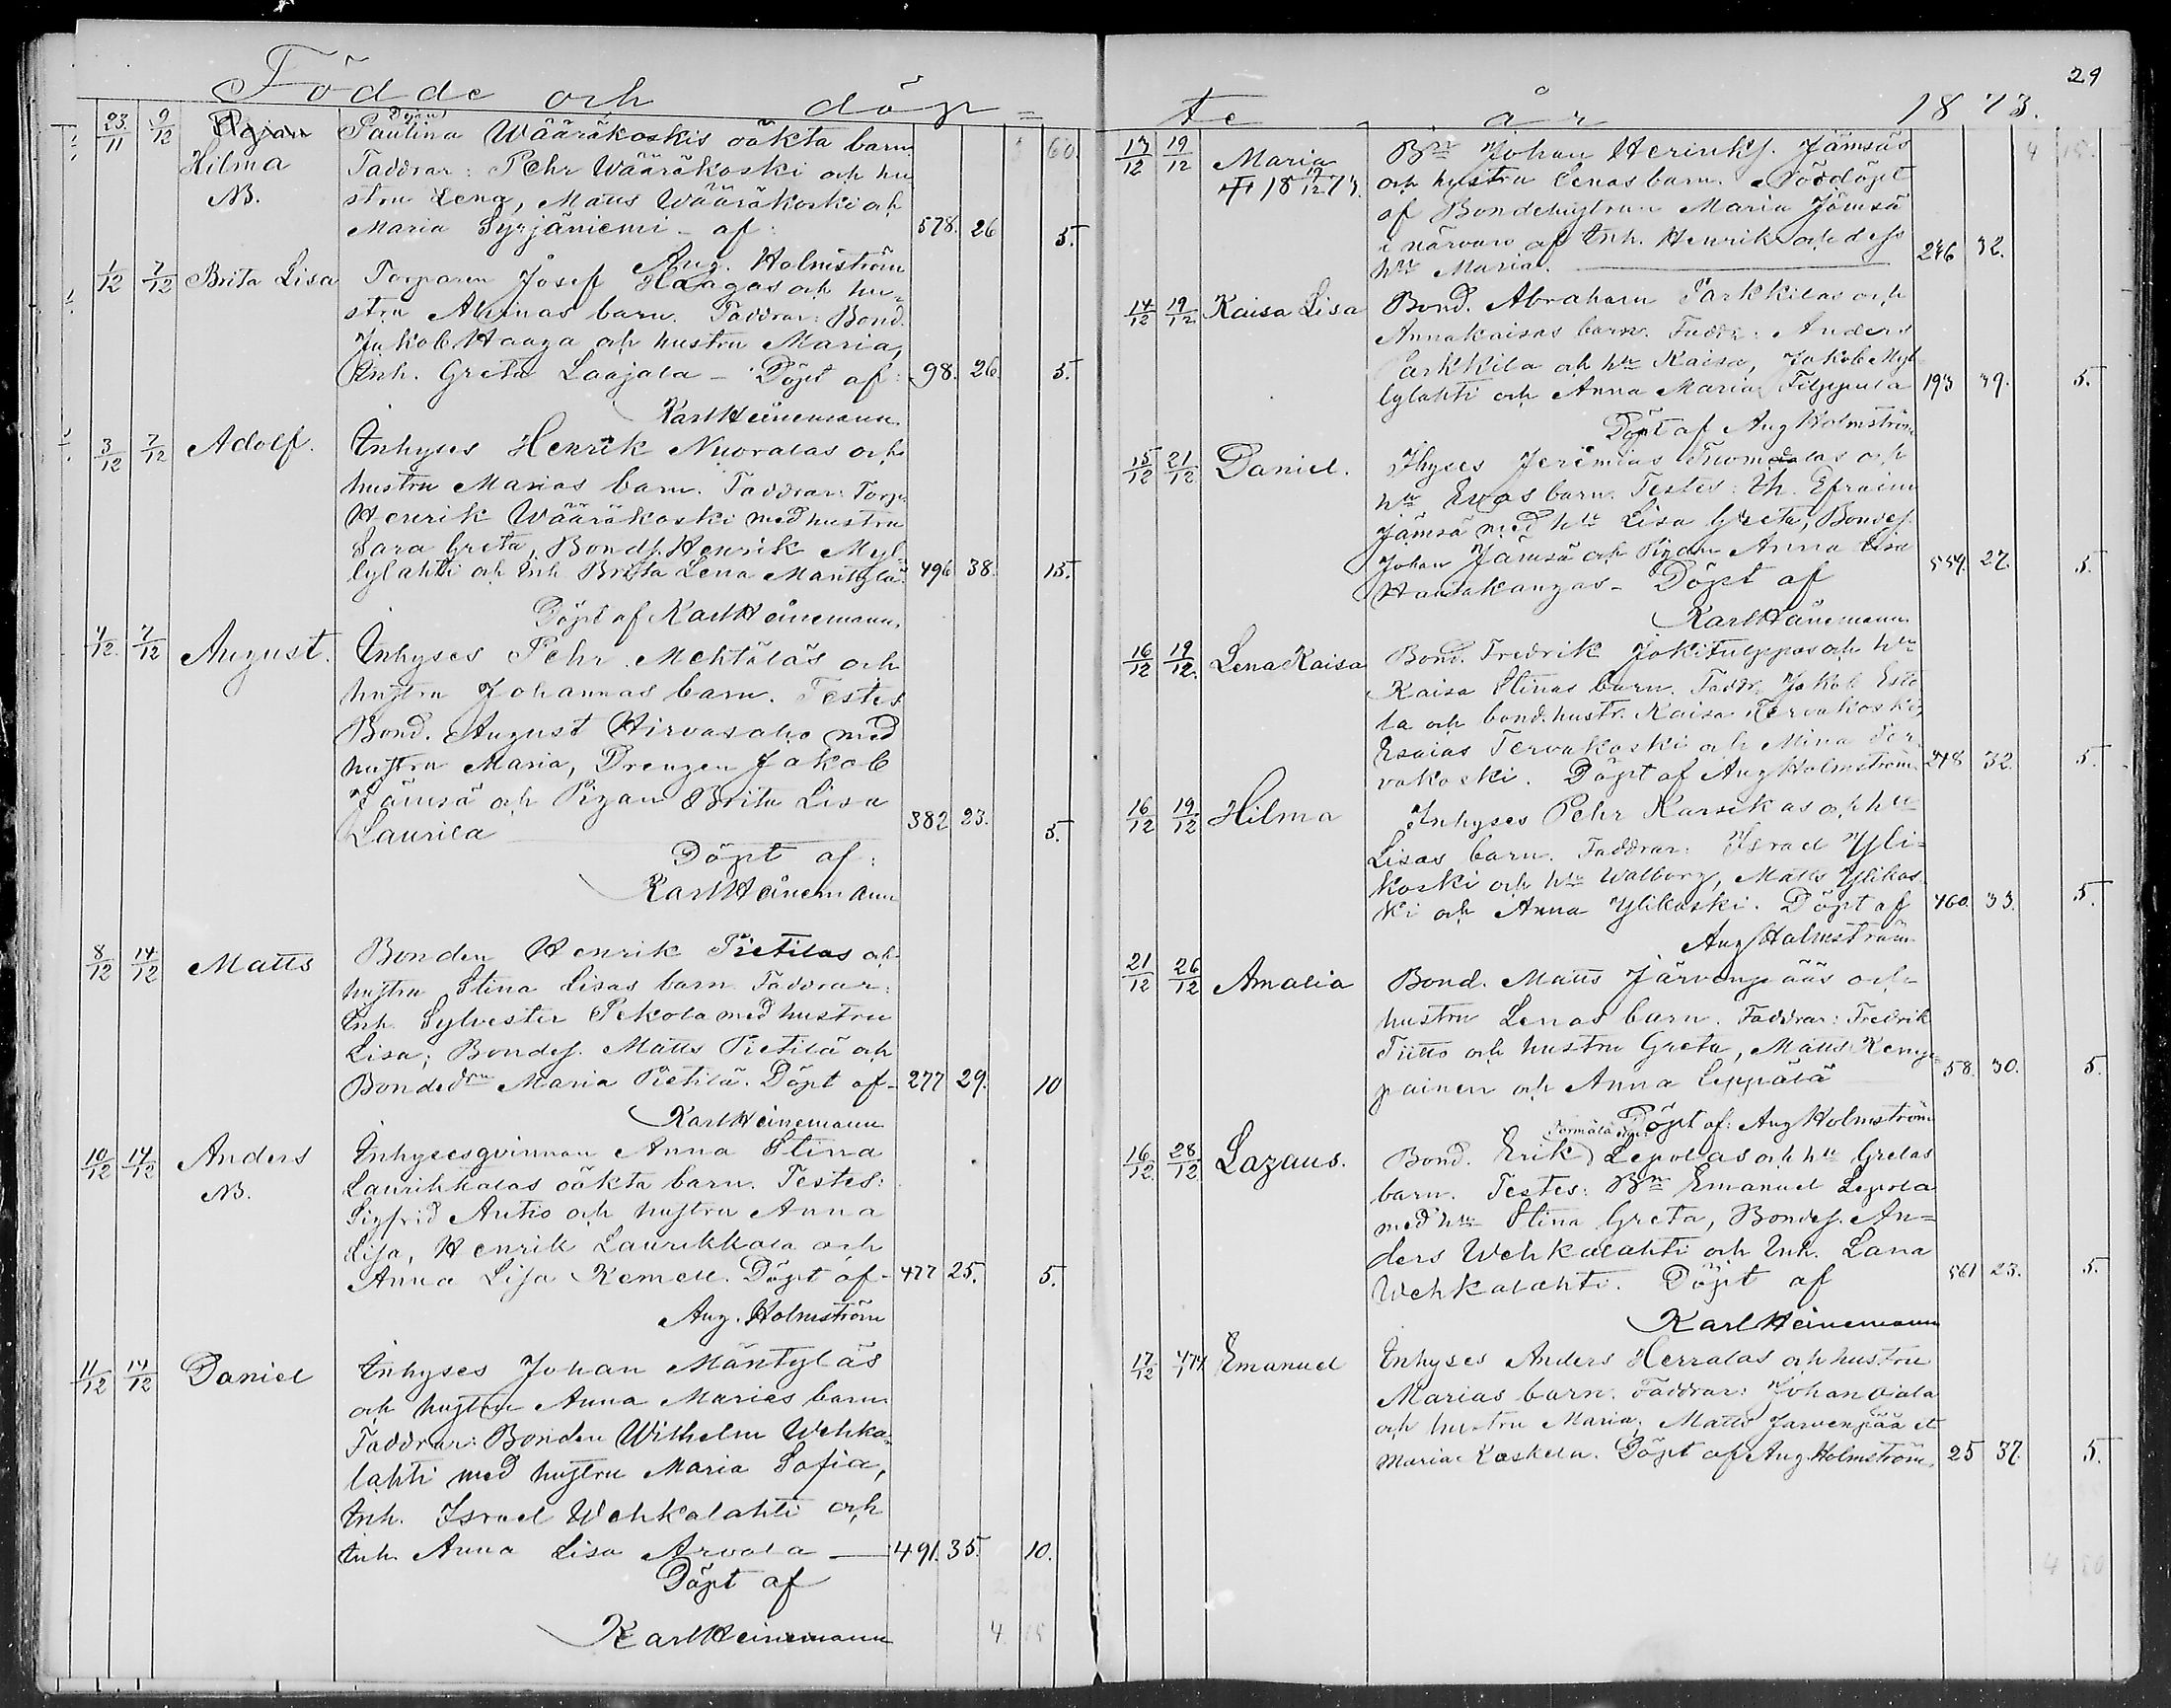 Födde och döp=
23/11 9/12 Pigan Pigan Paulina Wääräkoskis oäkta barn 60.
Hilma Faddrar: Pehr Wääräkoski och hu
NB. stru Lena, Matts Wääräkoski och
Maria Syrjäniemi - af: 578. 26 5.
Aug. Holmström
1/12 7/12 Brita Lisa Torparen Josef Haagas och hu-
stru Alvinas barn. Faddrar: Bond.
Jakob Haaga och hustru Maria,
Inh. Greta Laajala - Döpt af: 98. 26. 5.
Karl Heinemann
3/12 7/12 Adolf. Inhyses Henrik Nuoralas och
hustru Marias barn. Faddrar: Torp.
Henrik Wääräkoski med hustru
Sara Greta, Bondf. Henrik Myl
lylahti och Inh. Brita Lena Mäntylä. 496 38. 15.
Döpt af Karl Heinemann.
4/12. 7/12 August. Inhyses Pehr Mehtäläs och
hustru Johannas barn. Testes
Bond. August Hirvasaho med
hustru Maria, Drengen Jakob
Jämsä och Pigan Brita Lisa
Laurila 382 23. 5.
Döpt af:
Karl Heinemann
8/12 14/12 Matts Bonden Henrik Pietilas och
hustru Stina Lisas barn Faddrar:
Inh. Sylvester Pekola med hustru
Lisa; Bondef. Matts Pietilä och
Bondedrn Maria Pietilä. Döpt af - 277 29. 10
Karl Heinemann
10/12 14/12 Anders Inhysesqvinnan Anna Stina
NB. Laurikkalas oäkta barn. Testes:
Sigfrid Autio och hustru Anna
Lisa, Henrik Laurikkala och
Anna Lisa Kemell. Döpt af - 477 25. 5.
Aug. Holmström
11/12 14/12 Daniel Inhyses Johan Mäntyläs
och hustru Anna Marias barn
Faddrar: Bonden Wilhelm Wehka-
lahti med hustru Maria Sofia,
Inh. Israel Wehkalahti och
Inh. Anna Lisa Arvola 491. 35. 10.
Döpt af
Karl Heinemann
4. 15
29
te år 1873.
13/12 19/12 Maria Bn Johan Henrikf. Jämsäs 4 15.
18 19/12 73. och hustru Lenas barn. Nöddöpt
af Bondehustrun Maria Jämsä
i närvaro af Inh. Henrik och dess
hu Maria. 246 32.
14/12 19/12 Kaisa Lisa Bond. Abraham Parkkilas och
Annakaisas barn. Faddr: Anders
Parkkila och hu Kaisa, Jakob Myl
lylahti och Anna Maria Filppula 193 39. 5.
Döpt af Aug Holmström
15/12 21/12 Daniel. Ihyses Jeremias Tuomalas och
hu Evas barn. Testes: Ih. Efraim
Jämsä med hu Lisa Greta, Bondef.
Johan Jämsä och Pigan Anna Lisa
Haudakangas - Döpt af 559. 27. 5.
Karl Heinemann
16/12 19/12. Lena Kaisa Bond. Fredrik Jokitulppos och hu
Kaisa Stinas barn. Faddr. Jakob Esko
la och bond. hustr. Kaisa Tervakoski,
Esaias Tervakoski och Mina Ter
vakoski. Döpt af Aug Holmström 248 32. 5.
16/12 19/12 Hilma Inhyses Pehr Karsikas och hu
Lisas barn. Faddrar: Israel Yli-
koski och hu Walborg, Matts Ylikos
ki och Anna Ylikoski. Döpt af 460. 33. 5.
Aug Holmström
21/12 26/12 Amalia Bond. Matts Järvenpääs och
hustru Lenas barn. Faddrar: Fredrik
Tiitto och hustru Greta, Matts Kemp-
painen och Anna Leppälä 58. 30. 5.
Döpt af: Aug Holmström
16/12. 28/12 Lazaus. Bond. Erik Lepolas och hu Gretas
barn. Testes: Bn Emanuel Lepola
med hu Stina Greta, Bondef. An=
ders Wehkalahti och Inh. Lana
Wehkalahti. Döpt af 561 23. 5.
Karl Heinemann
17/12 Emanuel Inhyses Anders Herralas och hustru
Marias barn. Faddrar: Johan Ojala
och hustru Maria, Matts Järvenpää et
Maria Koskela. Döpt af Aug. Holmström. 25 37. 5.
4 20